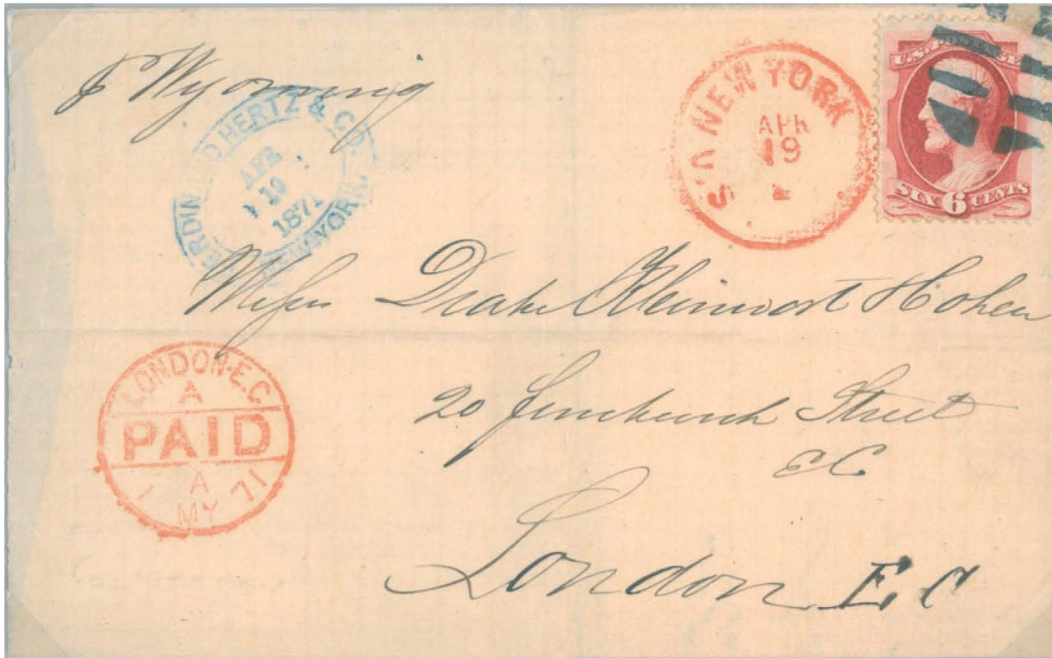 p Wyoming
FERDINAND HERTZ & CO.
APR
19
1871
NEW YORK.
NEW YORK
APR
19
U.S. POSTAGE
SIX 6 CENTS
Messrs Drake Kleinwort & Cohen
20 Fenchurch Street
EC
London E.C
LONDON-E.C
A
PAID
A
1 MY 71